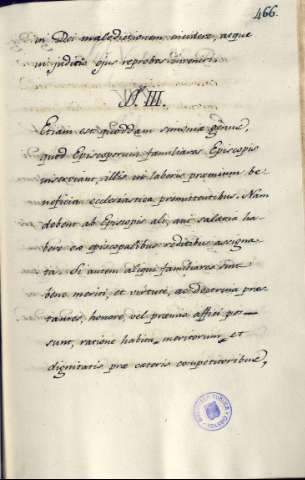 466.
in Dei maledictionem incidere, atque
in juditio ejus reprobos
§. III.
Etiam est quoddam simoniae genus,
quod Episcoporum familiares Episcopis
inserviant, illis in laboris praemium be
neficia ecclesiastica promittentibus. Nam
debent ab Episcopis ali, aut salaria ha
bere ex episcopalibus reditibus assigna
ta. Si autem aliqui familiares sint
bene meriti, et virtute, ac doctrina prae
tantes, honore, vel praemio affici pos
sunt, ratione habita meritorum, et
dignitatis prae caeteris competitoribus,